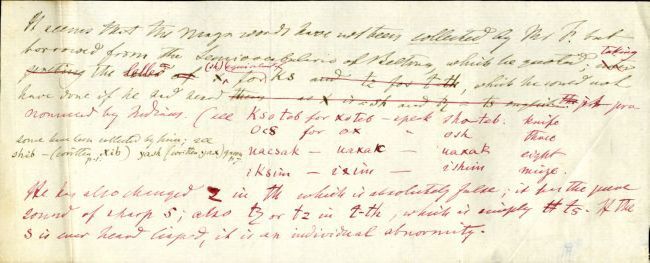 It seems that the Maya words have not been collected by Mr F. but
borrowed from the Semivocabulario of Beltran, which he quoted, taking
the (sh) x, for ks and tz for t-th, which he would not
have done if he had heard them pro
nounced by Indians. (see Ksotob for xotob - speak sho-tob. knife
ocs for ox " osh three
some have been collected by him; see
shib - (written xib) yash (written yax) uacsak - uaxak - uaxak eight
iksim - ixim - ishim maize.
He has also changed z in th which is absolutely false; it has the pure
sound of sharp s; also tz or tz in t-th, which is simply ts. If the
s is ever heard lisped, it is an individual abnormity.